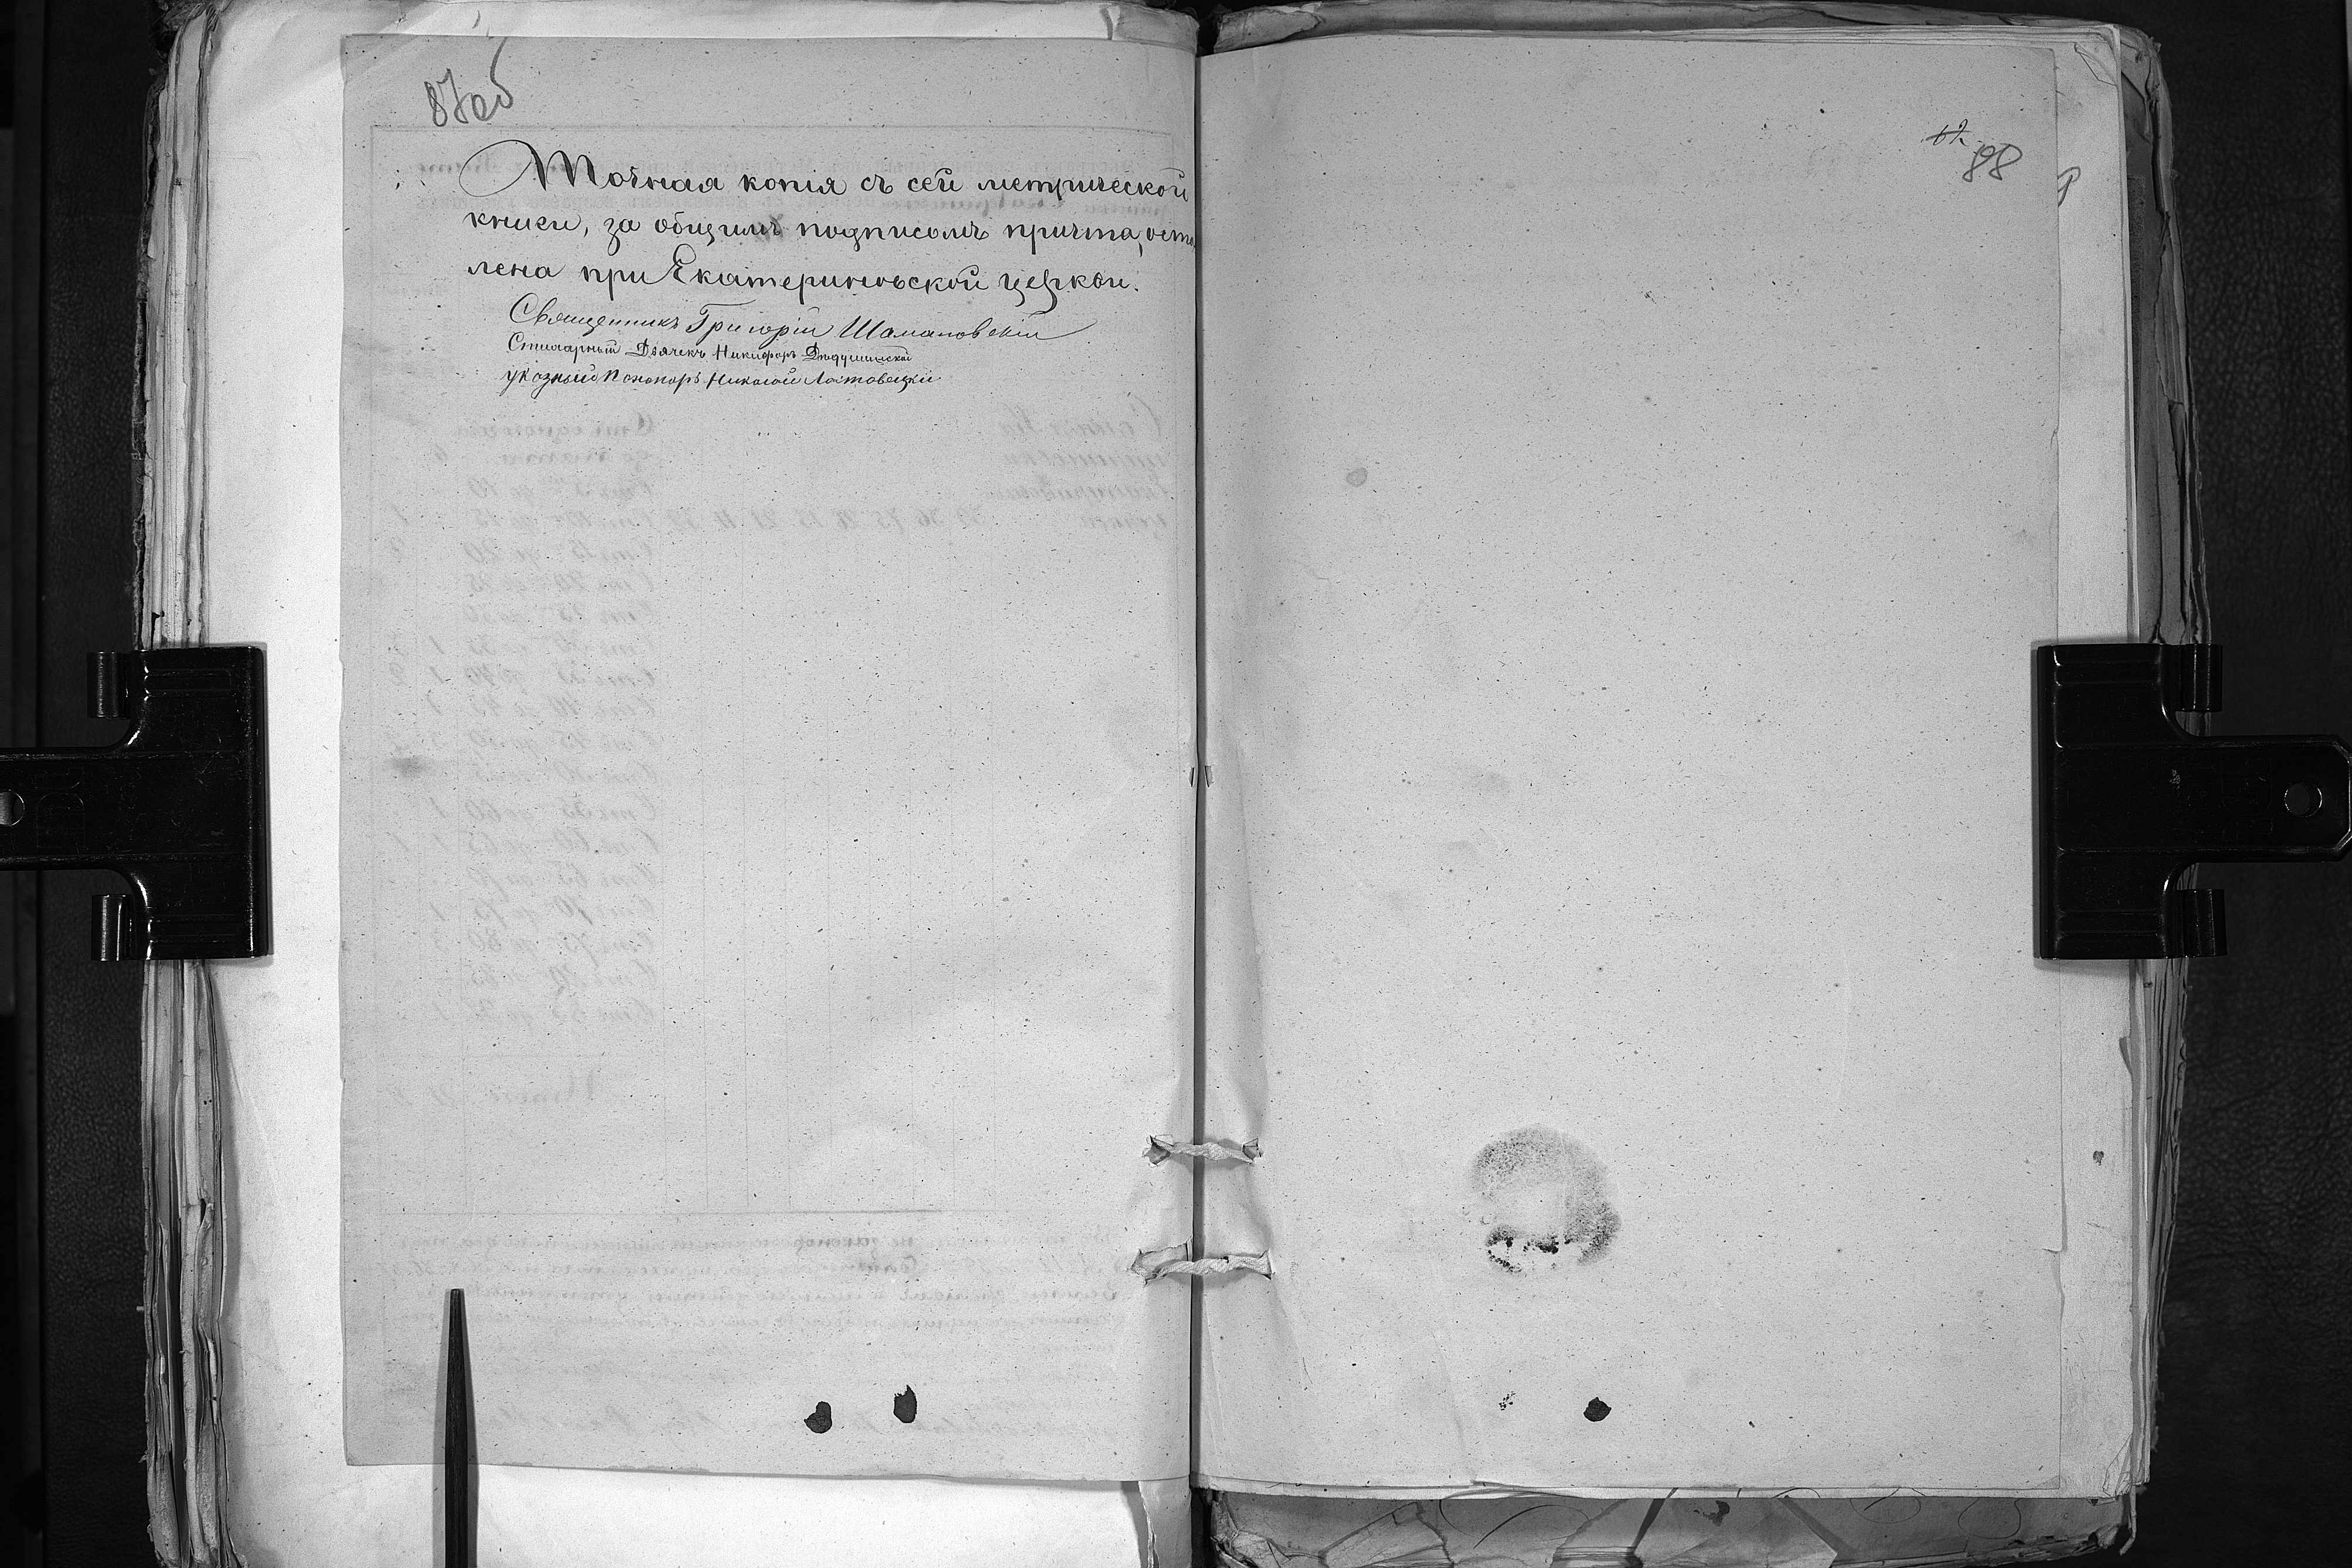 87об
Точная копія съ сей метрической
книги, за общимъ подписомъ причта, остав
лена при Екатериновской церкви.
Священникъ Григорій Шамановскій
Стихарный Дьячекъ Никифоръ
указный Пономорь Николай Лотовецкій
88